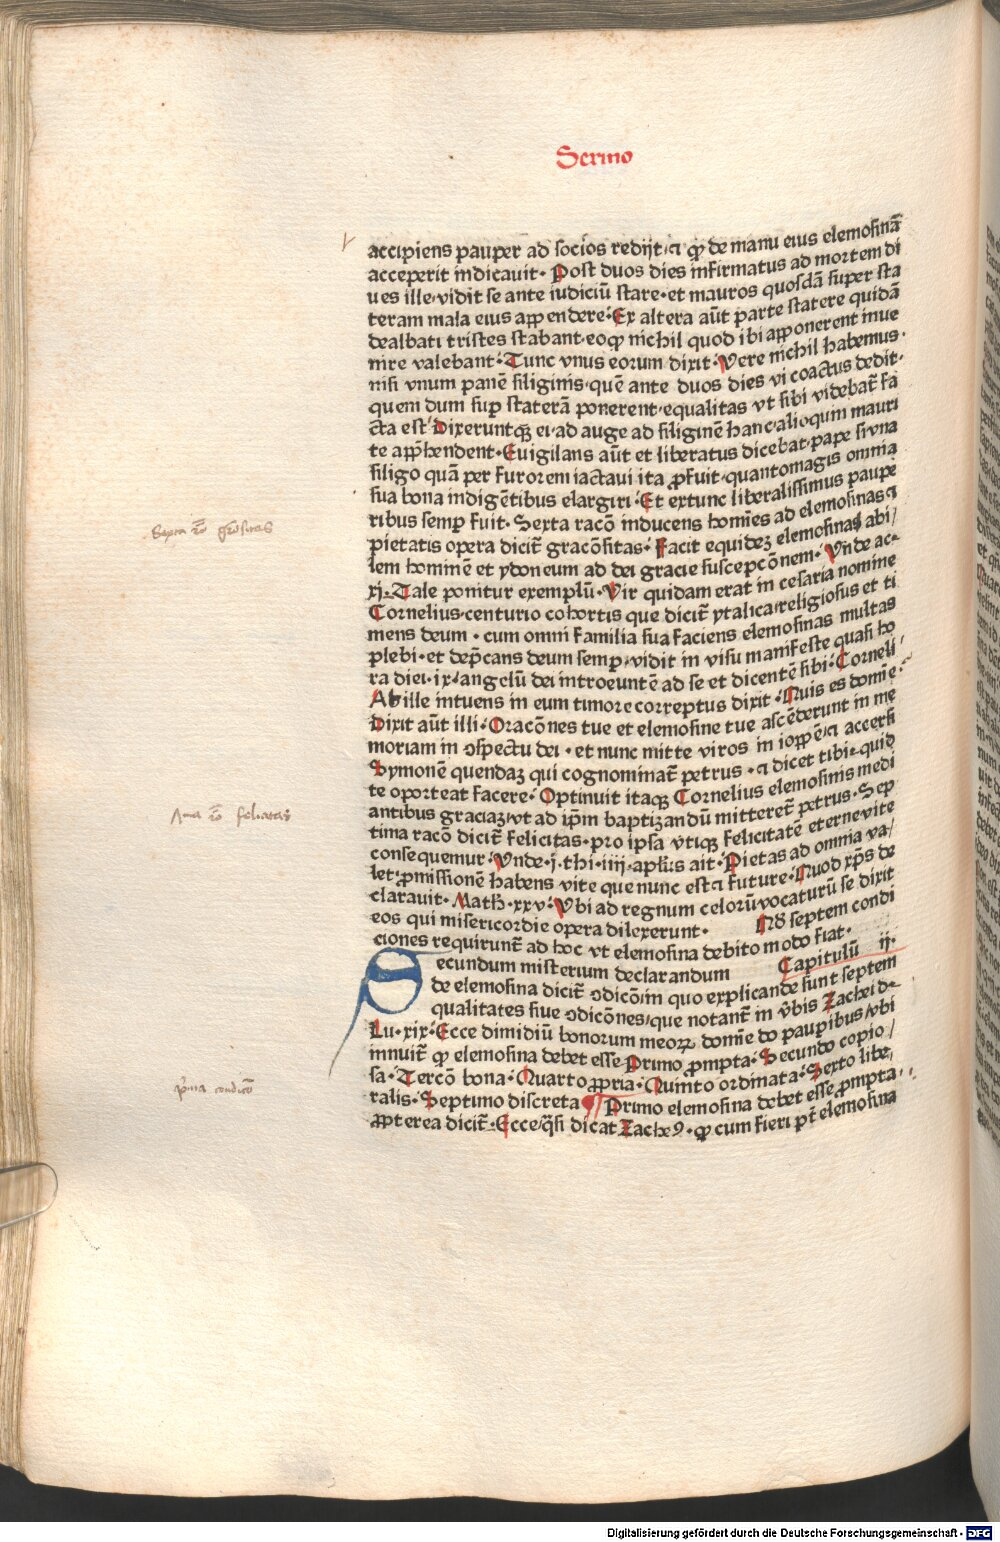 Sermo
accipiens pauper ad socios redijt·⁊ ꝙ de manu eius elemosinā
acceperit indicauit· Post duos dies infirmatus ad mortem di
ues ille·vidit se ante iudiciū stare·et mauros quosdā super sta
teram mala eius appendere· Ex altera aūt parte statere quidā
dealbati tristes stabant·eoꝙ nichil quod ibi apponerent inue
nire valebant· Tunc vnus eorum dixit· Vere nichil habemus·
nisi vnum panē siliginis·quē ante duos dies vi coactus dedit·
quem dum suꝑ staterā ponerent·equalitas vt sibi videbat̄ fa
cta est Dixeruntqꝫ ei·ad auge ad siliginē hanc·alioquin mauri
te app̄hendent· Euigilans aūt et liberatus dicebat·pape si vna
siligo quā per furorem iactaui ita ꝓfuit·quantomagis omnia
sua bona indigētibus elargiri· Et extunc liberalissimus paupe
ribus semꝑ fuit· Sexta racō inducens homīes ad elemosinas ⁊
pietatis opera dicit̄ gracōsitas· Facit equideꝫ elemosina abi/
lem hominē et ydoneum ad dei gracie suscepcōnem· Vnde ac⸗
xj· Tale ponitur exemplū· Vir quidam erat in cesaria nomine
Cornelius·centurio cohortis que dicit̄ ytalica·religiosus et ti
mens deum· cum omni familia sua faciens elemosinas multas
plebi· et dep̄cans deum semꝑ·vidit in visu manifeste quasi ho
ra diei·ix·angelū dei introeuntē ad se et dicentē sibi· Corneli/
At ille intuens in eum timore correptus dixit· Quis es domīe·
Dixit aūt illi· Oracōnes tue et elemosine tue ascēderunt in me
moriam in ↄspectu dei· et nunc mitte viros in ioppē·⁊ accersi
Symonē quendaꝫ qui cognominat̄ petrus· ⁊ dicet tibi·quid
te oporteat facere· Optinuit itaqꝫ Cornelius elemosinis medi
antibus graciaꝫ·vt ad ip̄m baptizandū mitteret̄ petrus· Sep
tima racō dicit̄ felicitas·pro ipsa vtiqꝫ felicitatē eterne vite
consequemur· Vnde·j·thi·iiij·apl̄us ait· Pietas ad omnia va/
let·ꝓmissionē habens vite que nunc est ⁊ future· Quod xp̄s de
clarauit· Math·xxv· Vbi ad regnum celorū vocaturū se dixit
eos qui misericordie opera dilexerunt· Qd̄ septem condi
ciones requirunt̄ ad hoc vt elemosina debito modo fiat·
Capitulū ij·
Secundum misterium declarandum
de elemosina dicit̄ ↄdicō·in quo explicande sunt septem
qualitates siue ↄdicōnes·que notant̄ in v̄bis Zachei de
Lu·xix· Ecce dimidiū bonorum meoꝝ domīe do pauꝑibus/vbi
innuit̄ ꝙ elemosina debet esse· Primo ꝓmpta· Secundo copio/
sa· Tercō bona· Quarto ꝓpria· Quinto ordinata· Sexto libe⸗
ralis· Septimo discreta ¶ Primo elemosina debet esse ꝓmpta·
ꝓpterea dicit̄· Ecce/q̄si dicat Zacheꝰ· ꝙ cum fieri pt̄ elemosina
Sexta rō grōsitas
rō felicitas
p̄ma condicō
Digitalisierung gefördert durch die Deutsche Forschungsgemeinschaft - DFG